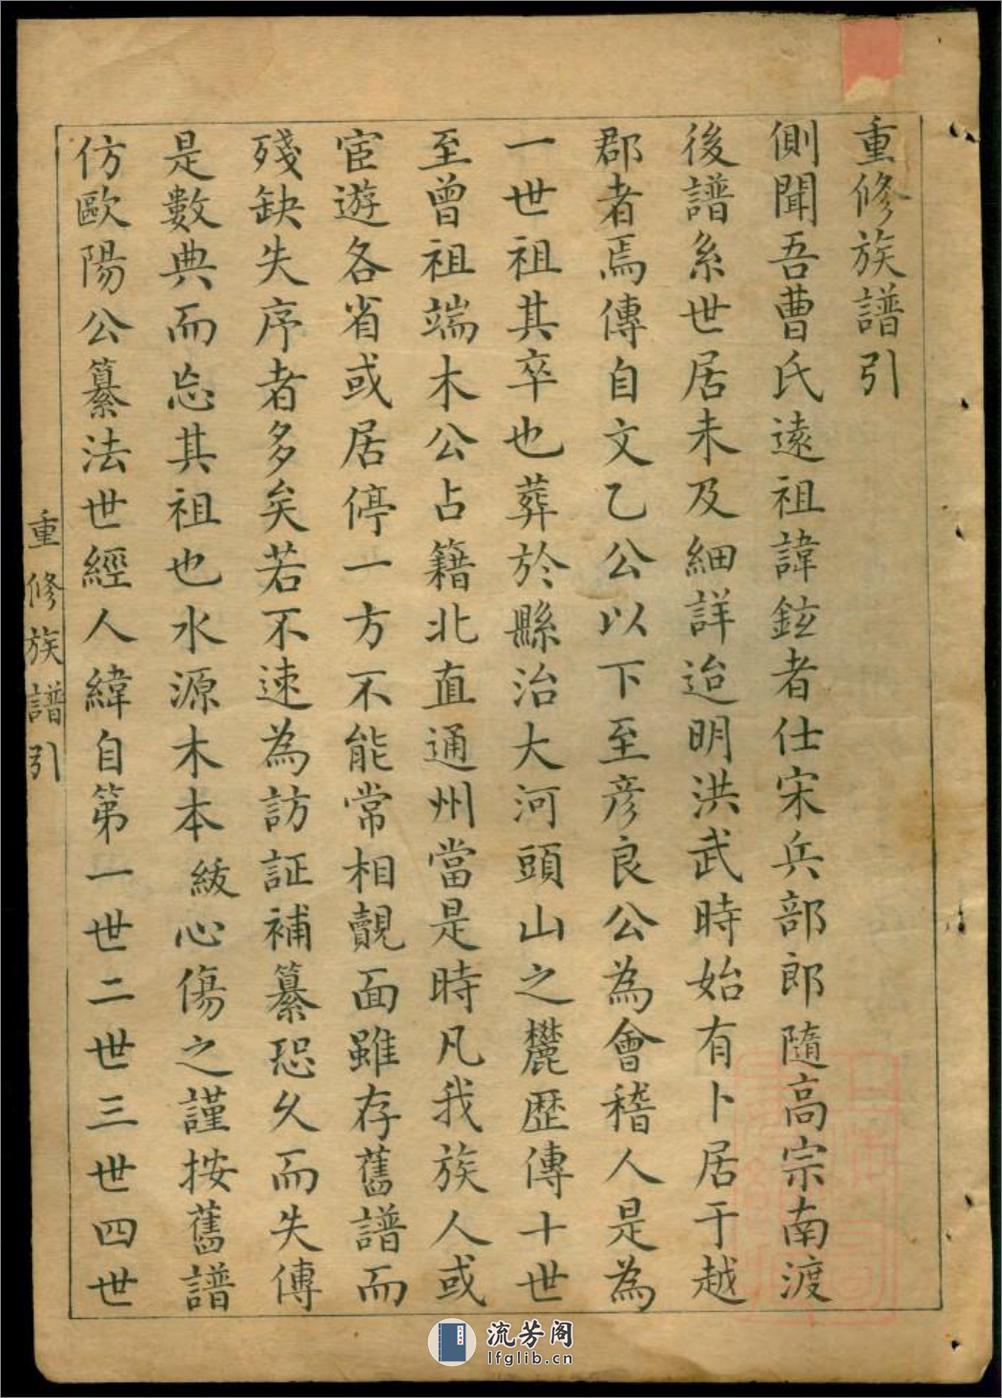 重修族譜引
側聞吾曹氏遠祖諱鉉者仕宋兵部郎隨高宗南渡
後譜系世居未及細詳迨明洪武時始有卜居于越
郡者焉傳自文乙公以下至彦良公為會稽人是為
一世祖其卒也葬於縣治大河頭山之麓歷傳十世
至曾祖端木公占籍北直通州當是時凡我族人或
宦遊各省或居停一方不能常相覿面雖存舊譜而
殘缺失序者多矣若不速為訪証補纂恐久而失傳
是數典而忘其祖也水源木本紱心傷之謹按舊譜
仿歐陽公纂法世經人緯自第一世二世三世四世
重修族譜引
流芳阁
lfglib.cn